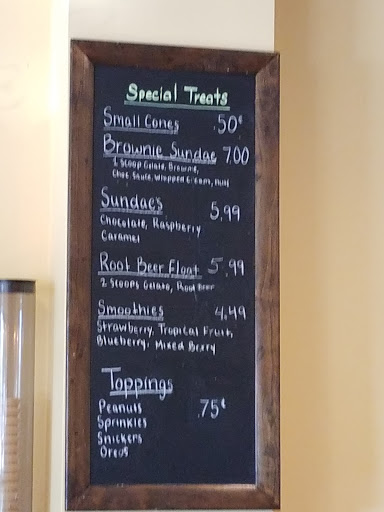 Special Treats
Small Cones .50¢
Brownie Sundae 7.00
1 Scoop Gelato, Brownie,
Choc Sauce, Whipped Cream, Nuts
Sundaes 5.99
Chocolate, Raspberry
Caramel
Root Beer Float 5.99
2 Scoops Gelato, Root Beer
Smoothies 4.49
Strawberry, Tropical Fruit,
Blueberry, Mixed Berry
Toppings
Peanuts .75¢
Sprinkles
Snickers
Oreos